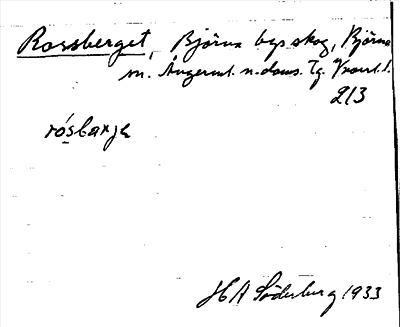 Rossberget, Björna bys skog, Björna
sn. Ångerml. n. doms. Tg. Vranl. l.
213
rósbarje
HA Söderberg 1933